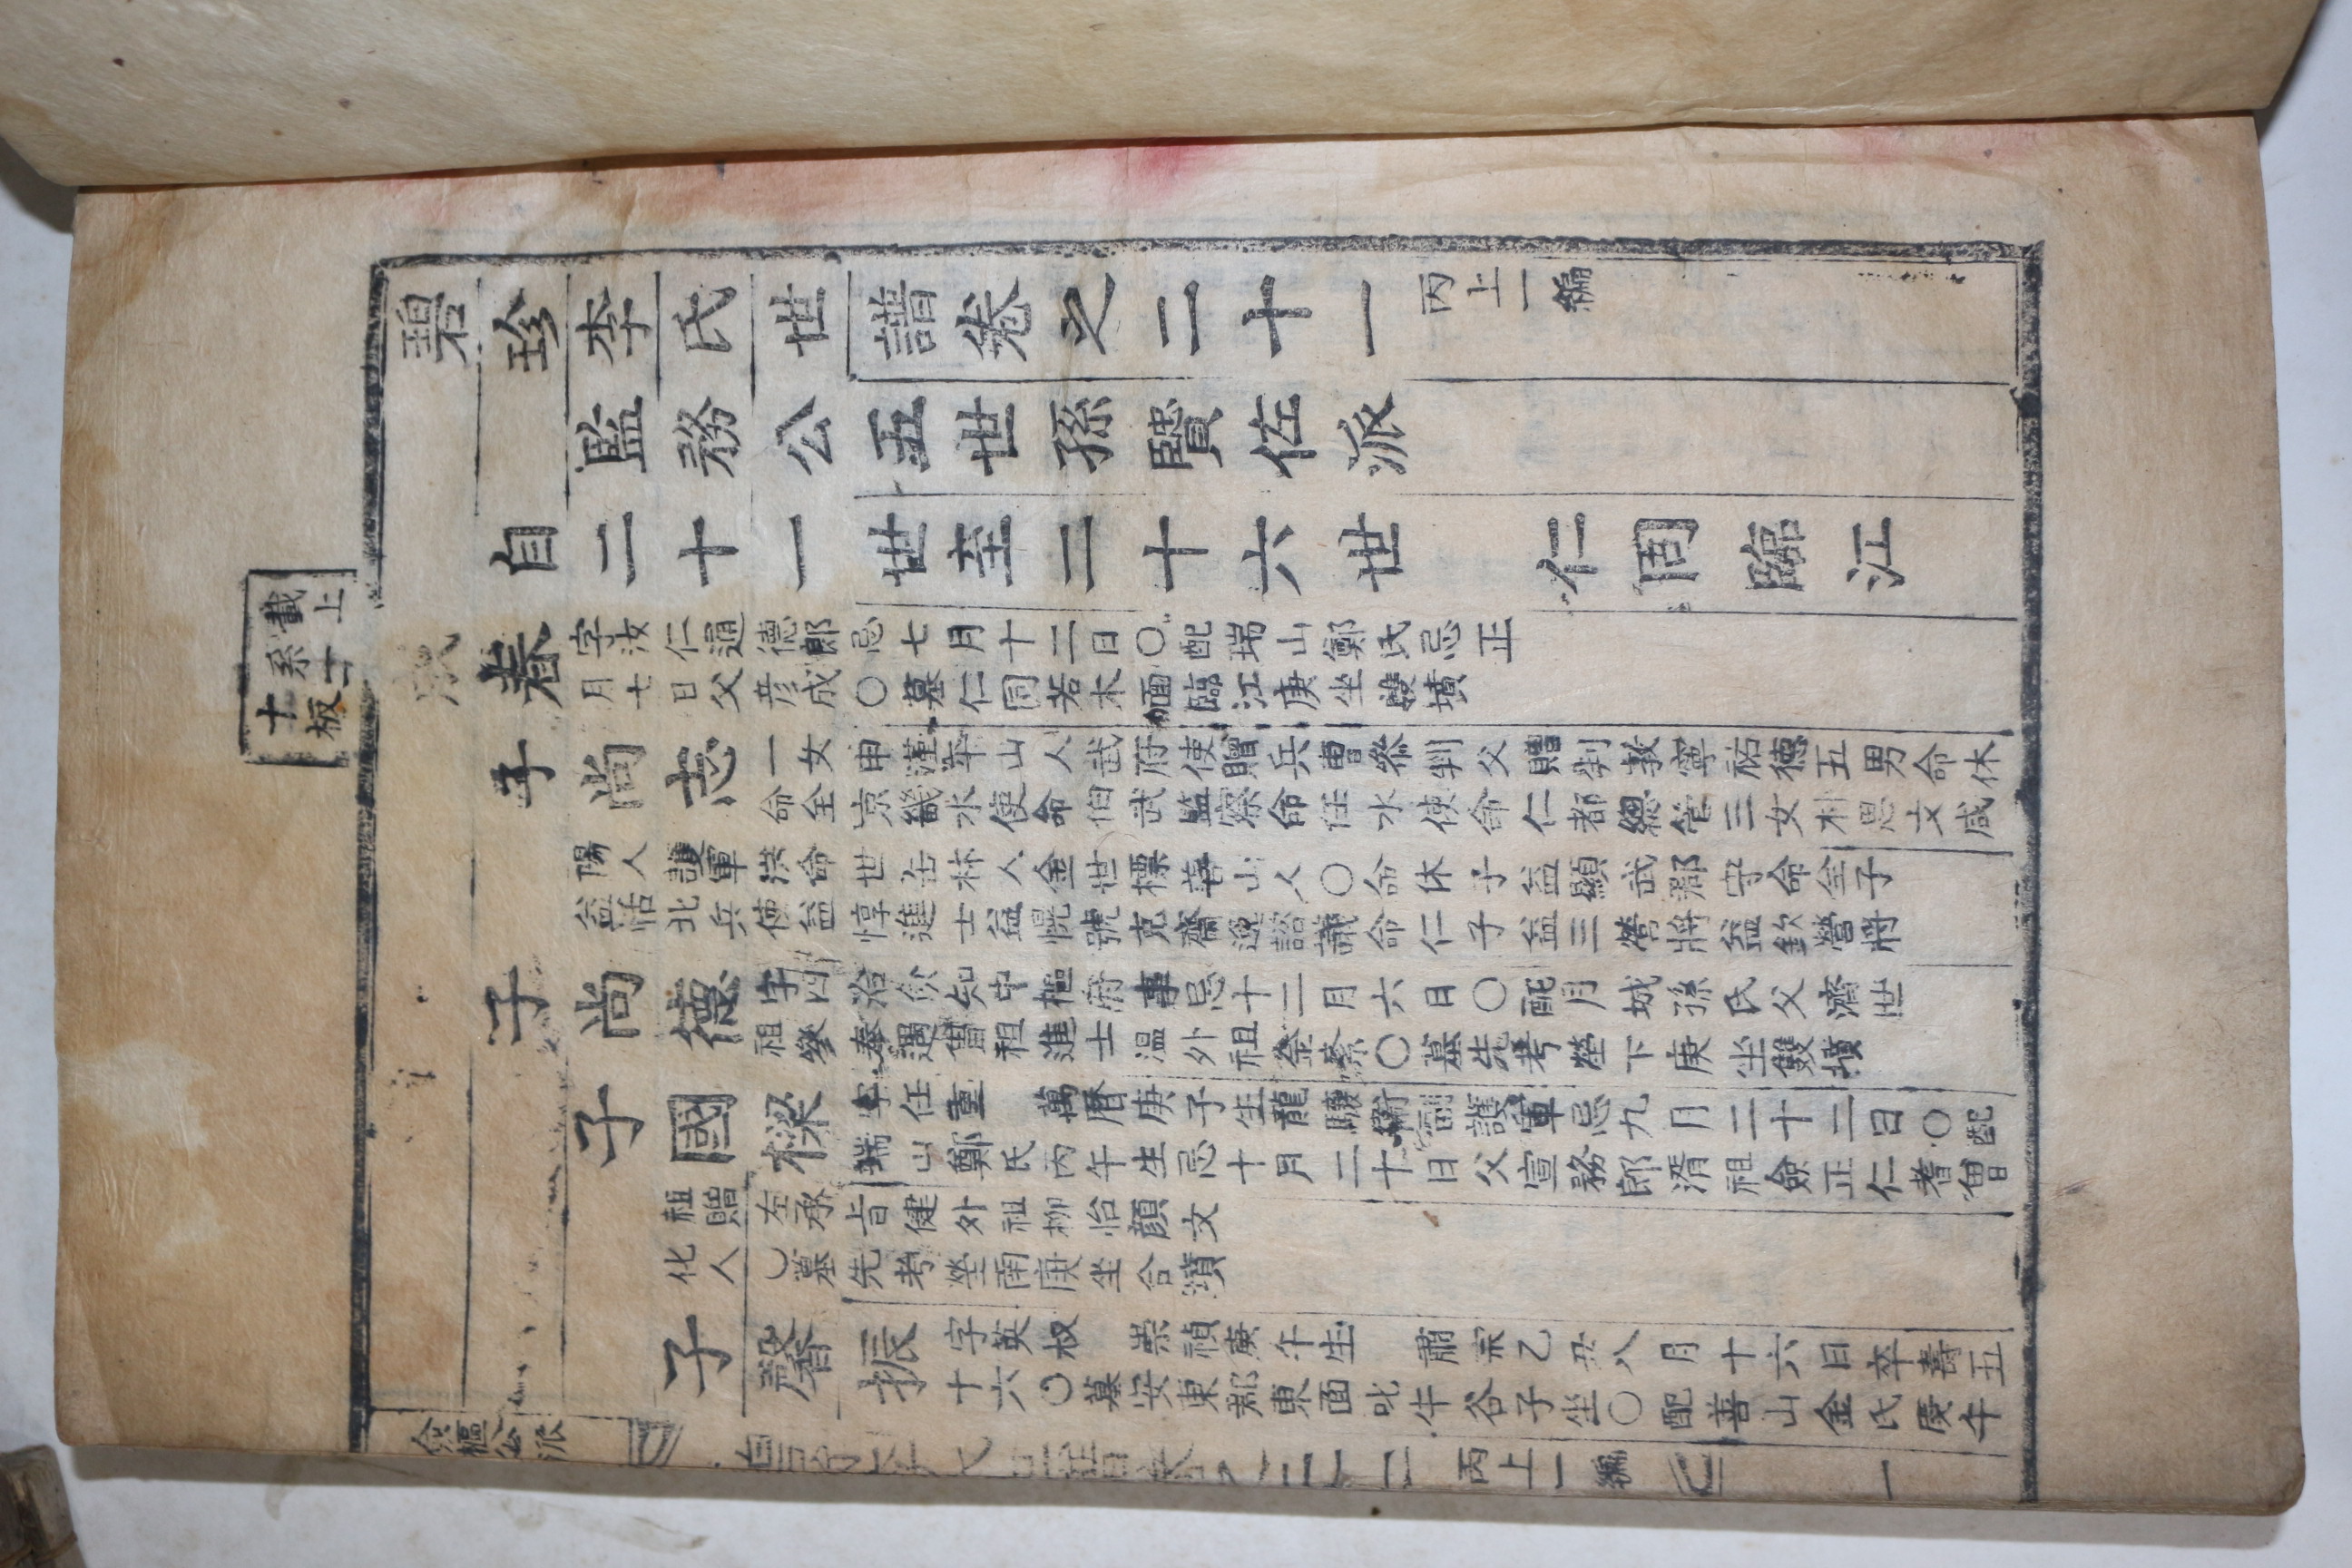 碧珍李氏世譜卷之二十一 丙上一編
監務公五世孫賢佐派
自二十一世至二十六世 仁同臨江
載上
系二
十板
春
字汝仁通德郎忌七月十二日〇配瑞山鄭氏忌正
月七日父彦成〇墓仁同若木面臨江庚坐雙墳
子尚志
一女申漢平山人武府使贈兵曹參判父贈判敦寧祐德五男命休
命全京畿水使命伯武監察命任水使命仁都總管三女朴思文咸
陽人護軍洪命世缶林人金世標善山人〇命休子益顯武郡守命全子
益恬北兵使益惇進士益愰號克齋逸諮議命仁子益三營將益欽營將
子尚德
字四治僉知中樞府事忌十二月六日〇配月城孫氏父濟世
祖參奉遇曾祖進士温外祖金紊〇墓先考塋下庚坐雙墳
子國樑
字任重 萬曆庚子生龍驤衛副護軍忌九月二十二日〇配
瑞山鄭氏丙午生忌十月二十日父宣務郎湑祖僉正仁耆曾
祖贈左承旨健外祖柳怡顔文
化人〇墓先考塋南庚坐合墳
子馨振
字英叔 崇禎庚午生 肅宗乙丑八月十六日卒壽五
十六〇墓安東郡東面叱牛谷子坐〇配善山金氏庚午
僉樞公派
丙上一編 一